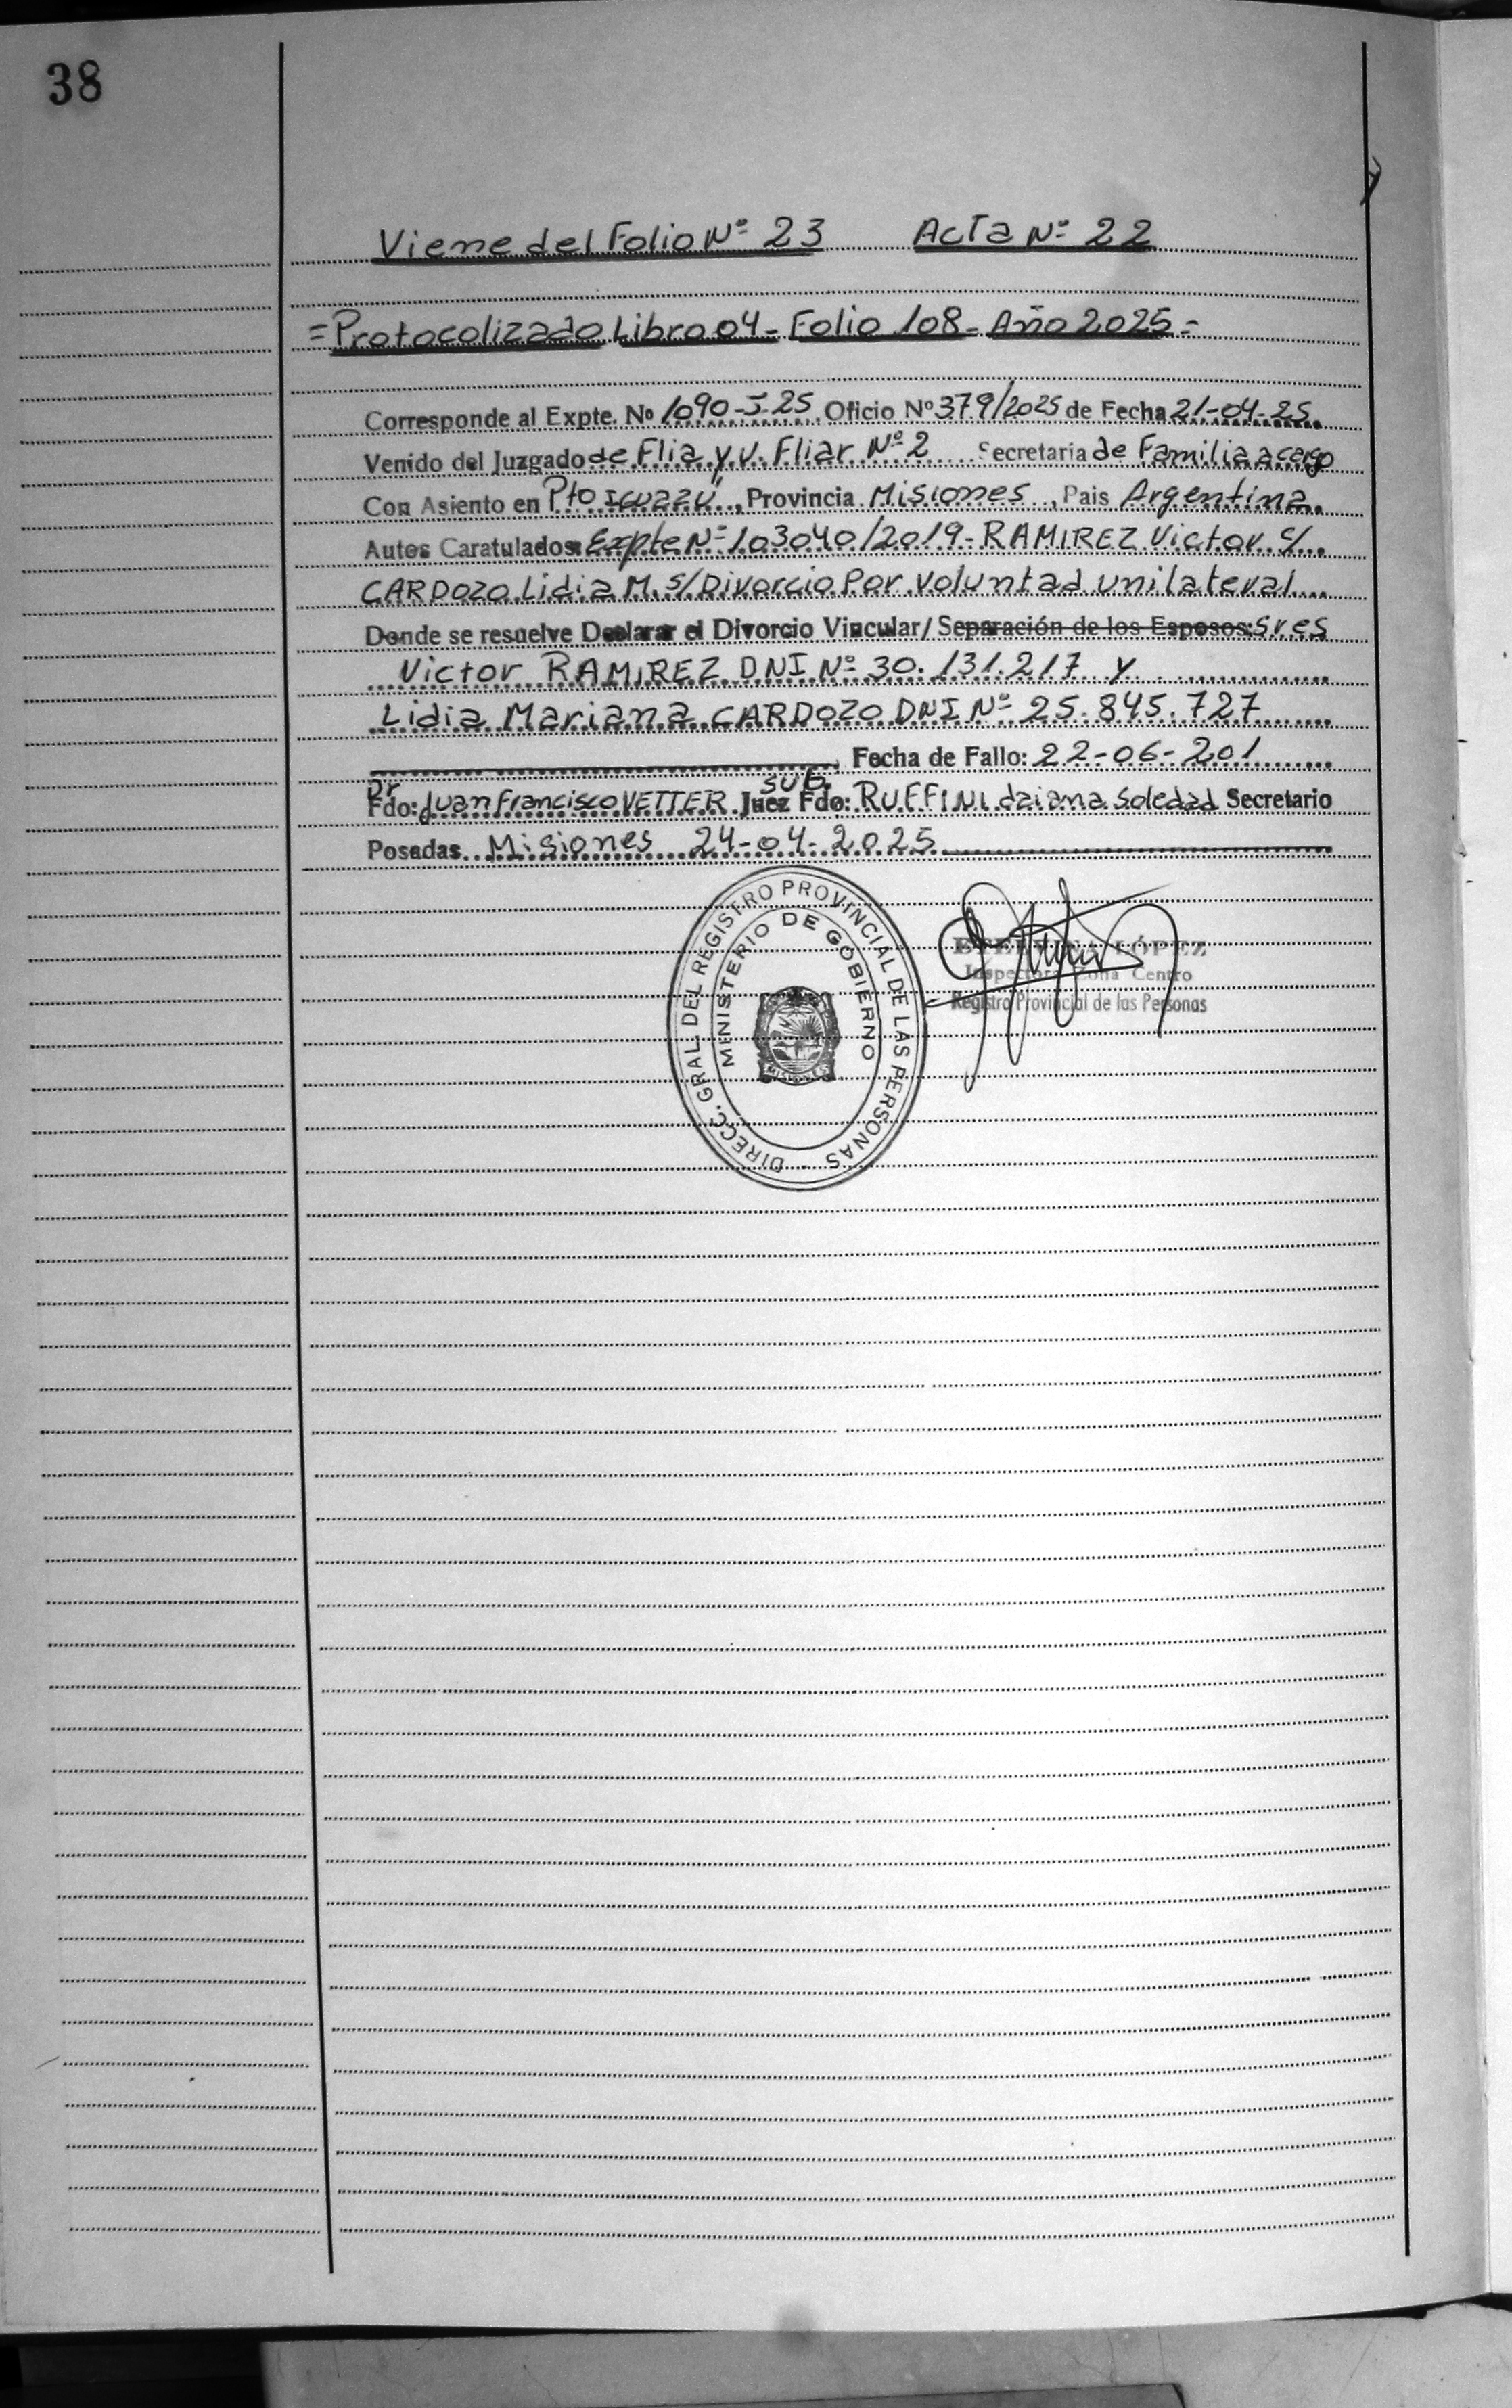 38
Viene del Folio Nº 23 Acta Nº 22
= Protocolizado Libro 04 - Folio 108 - Año 2025 =
Corresponde al Expte. Nº 1090-J-25 Oficio Nº 379/2025 de Fecha 21-04-25
Venido del Juzgado de Flia y V. Fliar Nº 2 Secretaria de Familia a cargo
Con Asiento en Pto Iguazú, Provincia Misiones, Pais Argentina
Autos Caratulados: Expte Nº 103040/2019 - RAMIREZ Victor c/
CARDOZO Lidia M. s/ Divorcio Por Voluntad unilateral
Donde se resuelve Declarar el Divorcio Vincular/ Separación de los Esposos: Sres
Victor RAMIREZ DNI Nº 30.131.217 y
Lidia Mariana CARDOZO DNI Nº 25.845.727
Fecha de Fallo: 22-06-201
Dr SUB.
Fdo: Juan Francisco VETTER Juez Fdo: RUFFINI daiana Soledad Secretario
Posadas Misiones 24-04-2025
DIRECC. GRAL DEL REGISTRO PROVINCIAL DE LAS PERSONAS
MINISTERIO DE GOBIERNO
MISIONES
LÓPEZ
Inspectora Zona Centro
Registro Provincial de las Personas